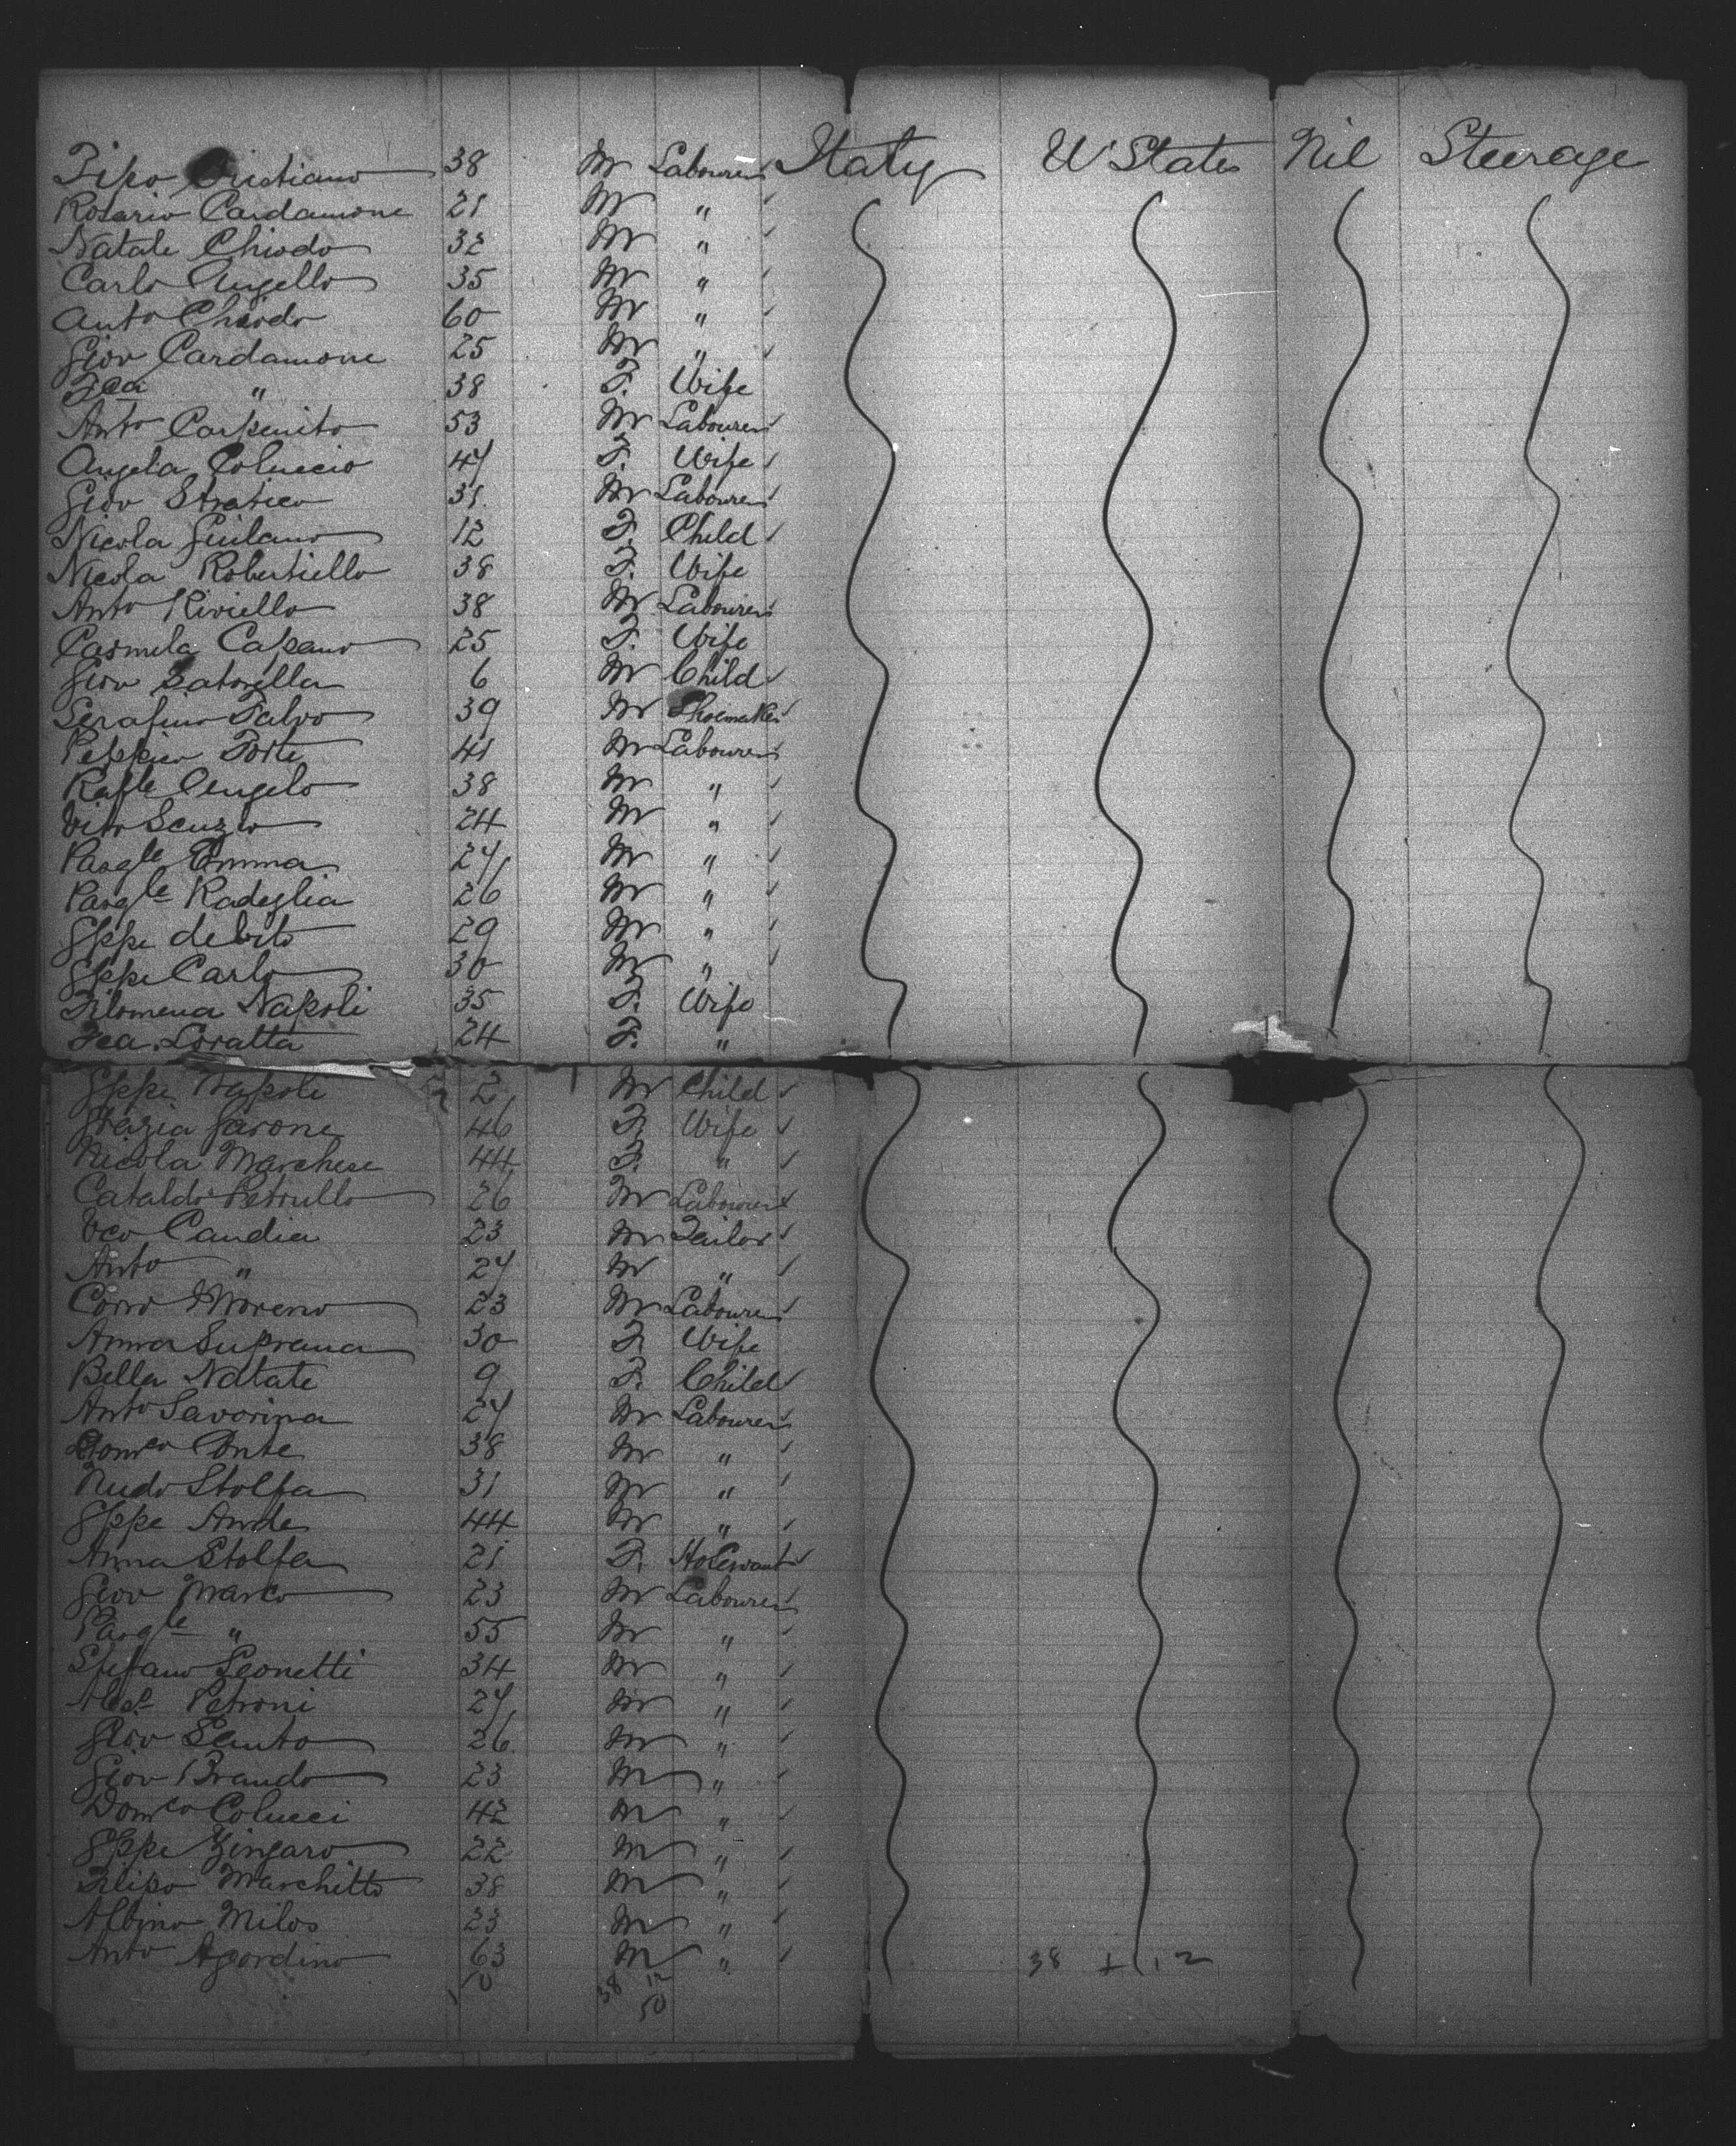 Fipo Cristiano 38 M Labourer Italy U States Nil Steerage
Rosario Cardamone 21 M "
Natale Chiodo 32 M "
Carlo Angello 35 M "
Anto Chiodo 60 M "
Giov Cardamone 25 M "
Fca " 38 F. Wife
Anto Carpenito 53 M Labourer
Angela Coluccio 47 F. Wife
Giov Stratico 31 M Labourer
Nicola Giulano 12 F. Child
Nicola Robertiello 38 F. Wife
Anto Riviello 38 M Labourer
Carmela Capano 25 F. Wife
Giov 6 M Child
Serafino Talvo 39 M Shoemaker
Forte 41 M Labourer
Rafle Angelo 38 M "
Vito Scuzio 24 M "
Pasqle Emma 27 M "
Pasqle Radeglia 26 M "
Gppe de Vito 29 M "
Gppe Carlo 30 M "
Filomena Napoli 35 F. Wife
Fca. Loratta 24 F. "
Gppe Napoli 2 M Child
Grazia Garone 46 F. Wife
Nicola Marchese 44 F. "
Cataldo Petrullo 26 M Labourer
Vco Candia 23 M Tailor
Anto " 27 M "
Corro Moreno 23 M Labourer
Anna Suprana 30 F. Wife
Bella Natate 9 F. Child
Anto Savorina 27 M Labourer
Domco Conte 38 M "
Nudo Stolfa 31 M "
Gppe Amde 44 M "
Anna Stolfa 21 F. Ho Servant
Giov Marco 23 M Labourer
Pasqle " 55 M "
Stefano Leonetti 34 M "
Petroni 27 M "
Giov Sento 26 M "
Giov Brando 23 M "
Domco Colucci 42 M "
Gppe Zingaro 22 M "
Filipo Marchitto 38 M "
Albino Milos 23 M "
Anto Agordino 63 M " 38 + 12
50 38 12
50